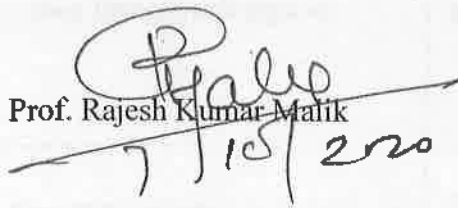 Prof. Rajesh Kumar Malik
7/10/2020